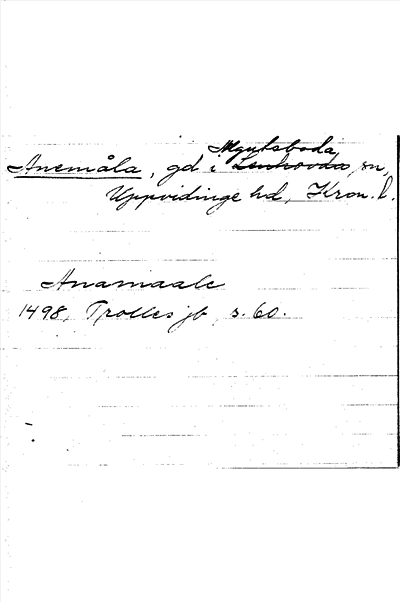 Älgultsboda
Anemåla, gd i Lenhovda sn,
Uppvidinge hd, Kron. l.
Anamaale
1498, Trolles jb s. 60.